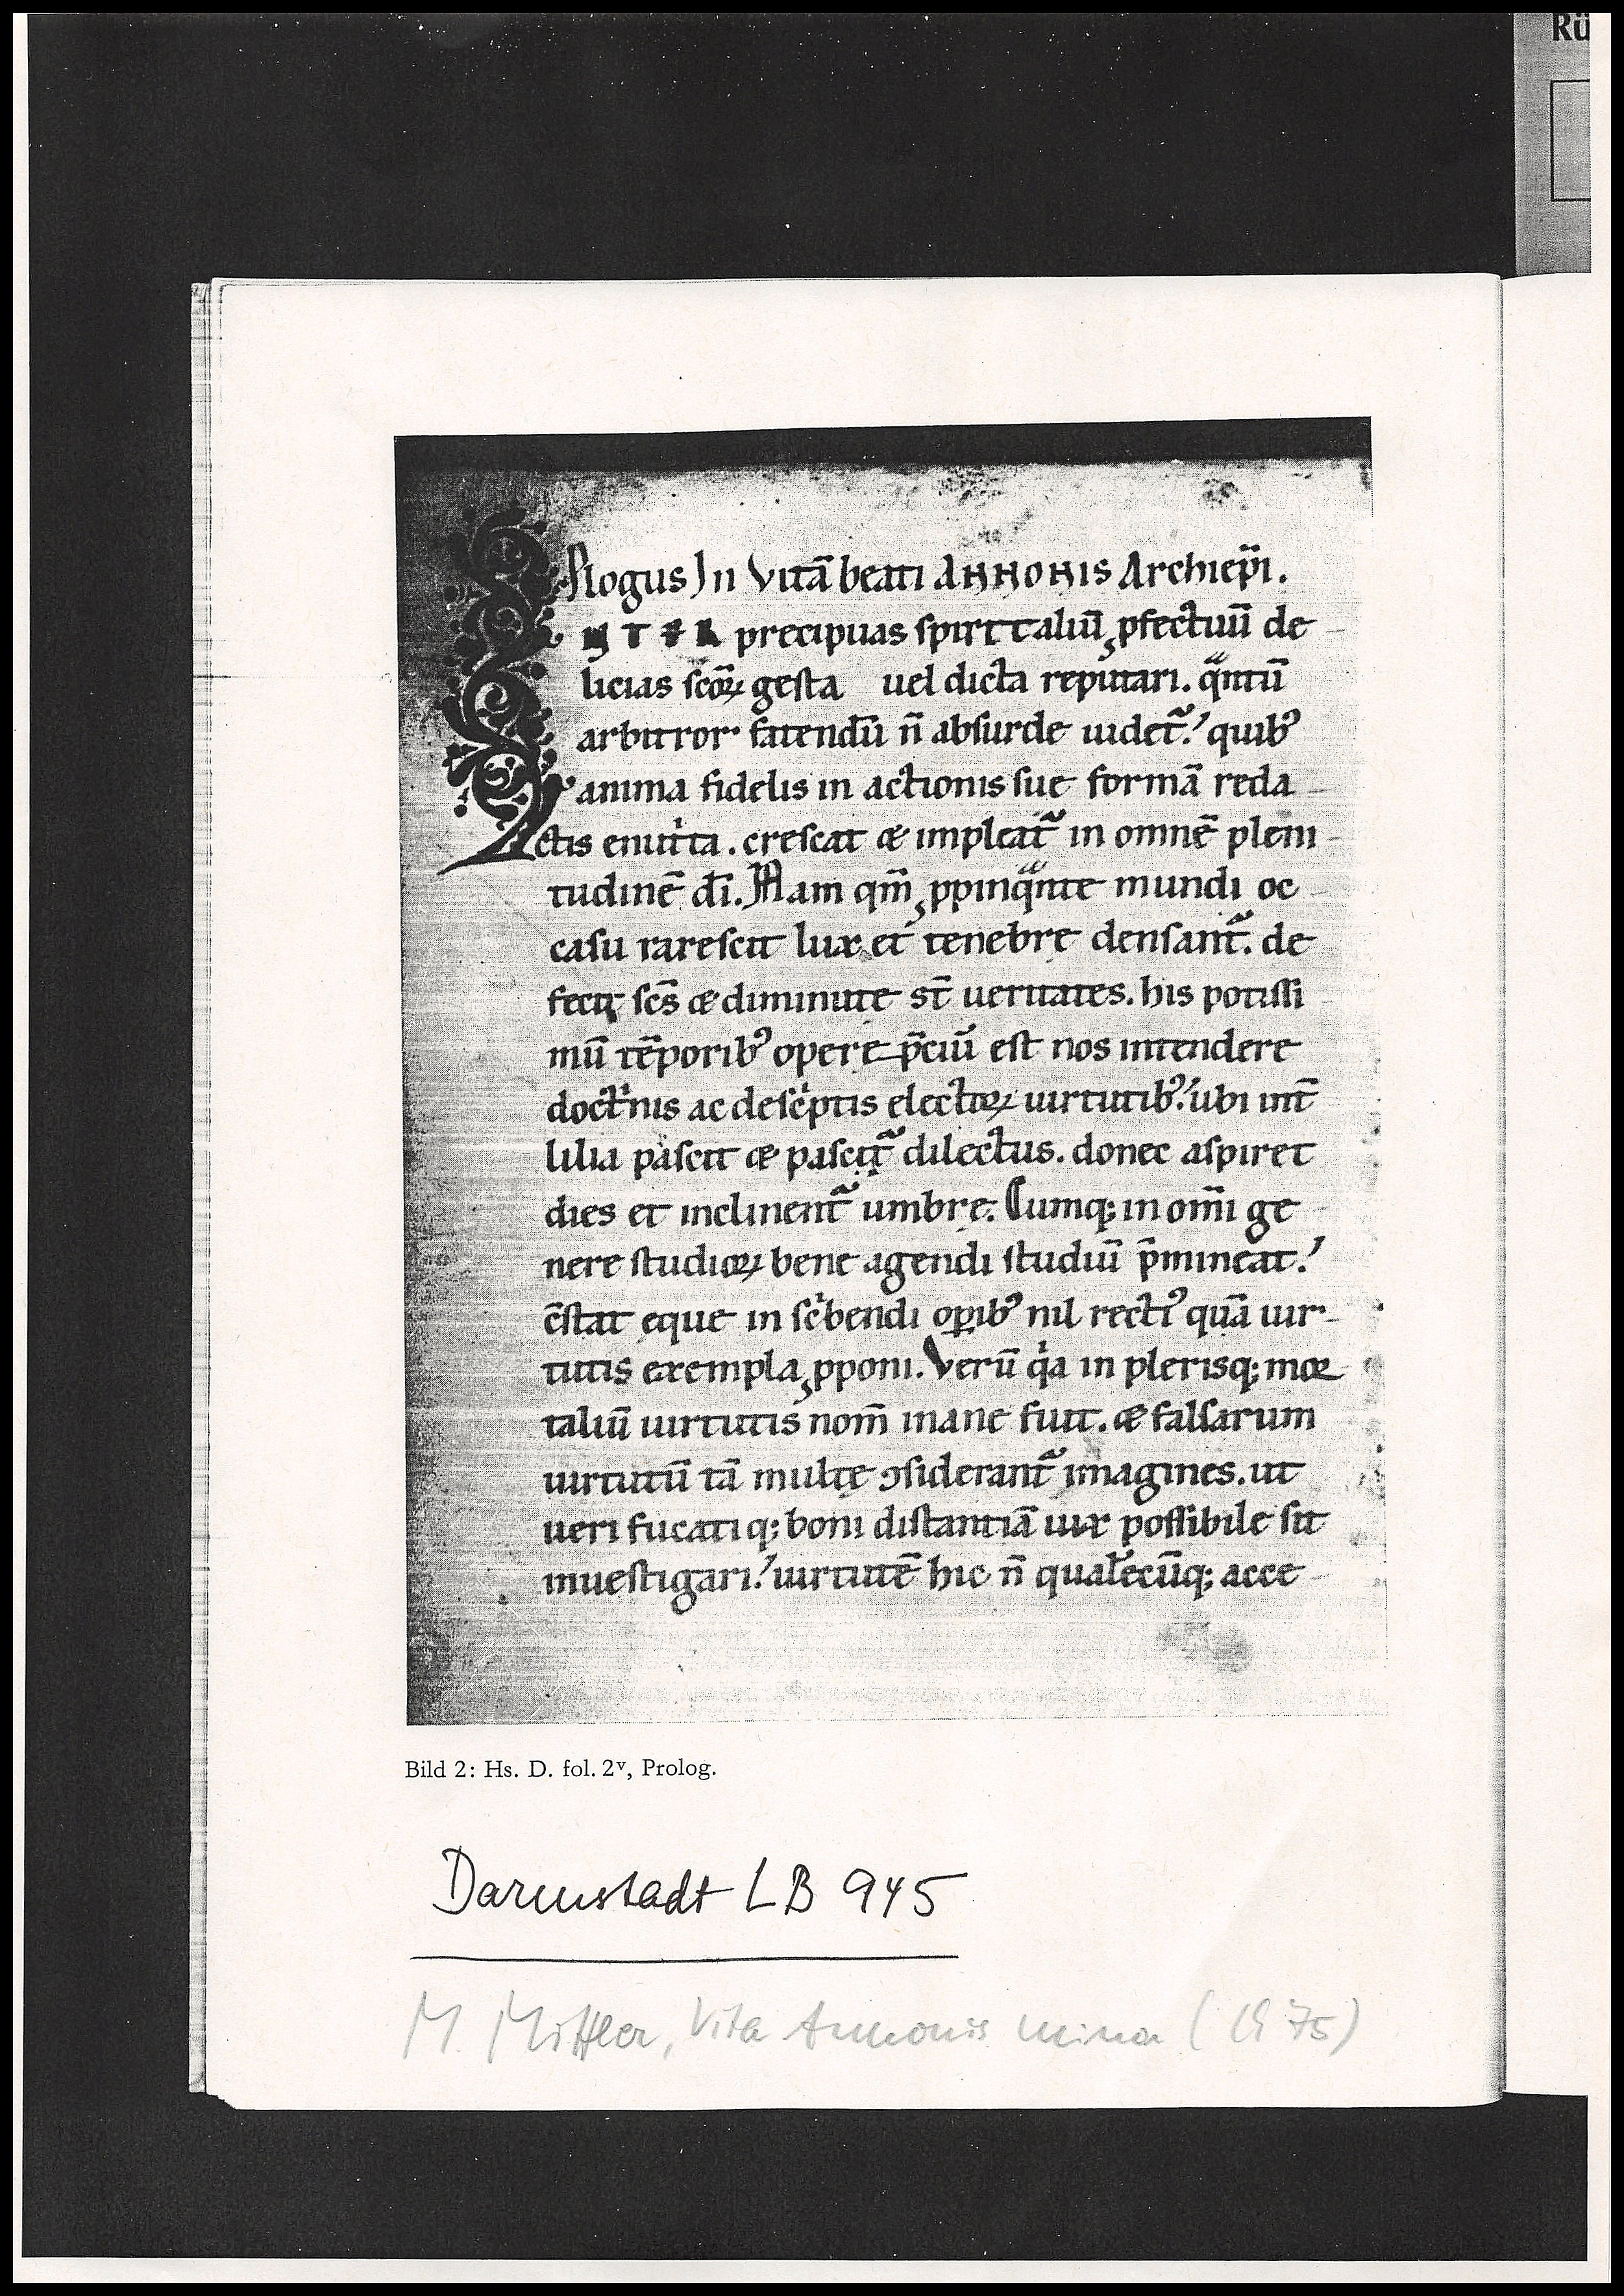 Rü
Plogus In Vitā beati ANNONIS Archiep̄i.
INTER precipuas spirítaliū ꝓfectuū de
licias scōꝝ gesta uel dicta reputari. qͣntū
arbitror fatendū n̄ absurde uidet᷑. quibꝰ
anima fidelis in actionis sue formā reda
ctis enutͥta. crescat & impleat᷑ in omnē pleni
tudinē dī. Nam qm̄ ꝓpinqͣnte mundi oc
casu rarescit lux et tenebrę densant᷑. de
fecit scs̄ & diminutę st̄ ueritates. his potissi
mū tēporibꝰ operę p̄ciū est nos intendere
doctͥnis ac descͥptis electoꝝ uirtutibꝰ. ubi int̄
lilia pascit & pascit᷑ dilectus. donec aspiret
dies et inclinent᷑ umbrę. Cumq; in om̄i ge
nere studioꝝ bene agendi studiū p̄mineat.
c̄stat ęque in scͥbendi opibꝰ nil rectiꝰ quā uir
tutis exempla ꝓponi. Verū qͥa in plerisq; mor
taliū uirtutis nom̄ inane fuit. & falsarum
uirtutū tā multę ꝯsiderant᷑ imagines. ut
ueri fucatiq; boni distantiā uix possibile sit
inuestigari. uirtutē hic n̄ qualecūq; acce
Bild 2: Hs. D. fol. 2ᵛ, Prolog.
Darmstadt LB 945
M. Mittler, Vita Annonis minor (1975)